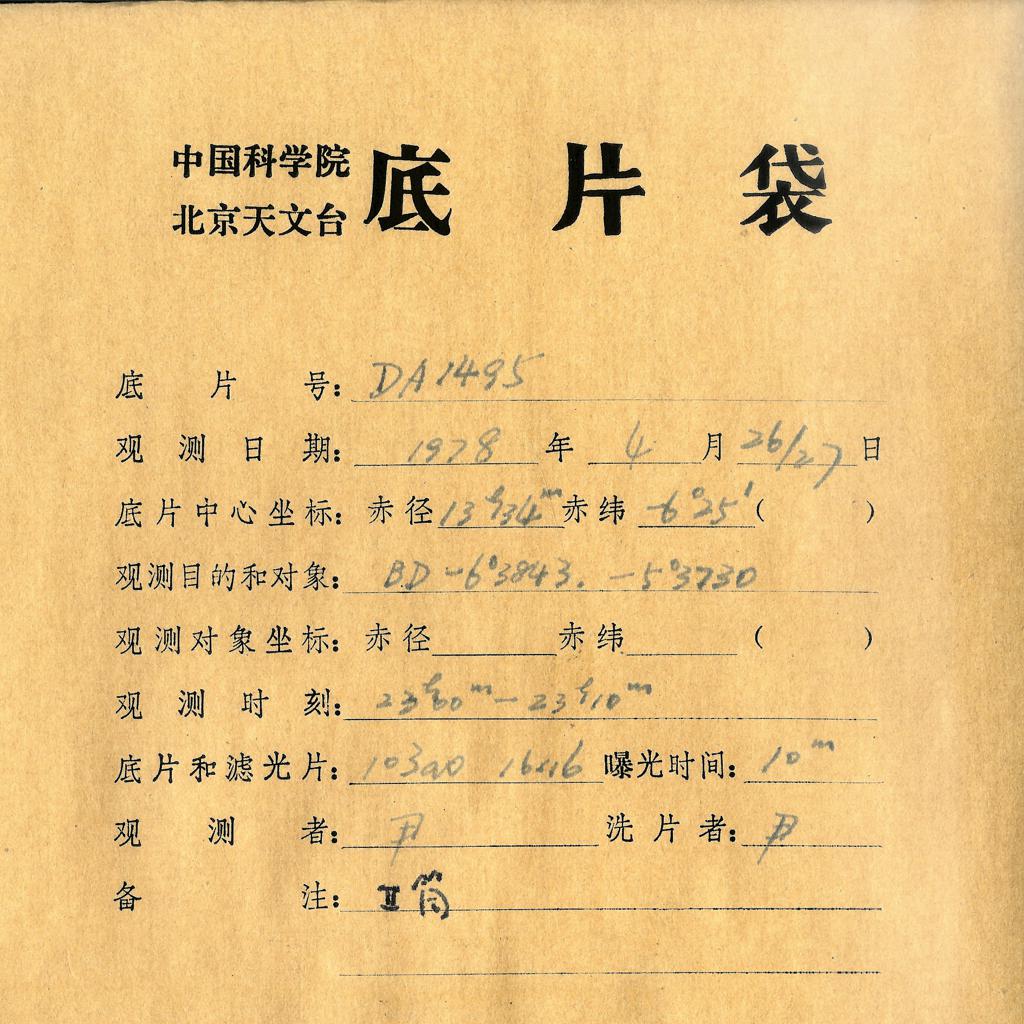 中国科学院
北京天文台
底片袋
底片号：DA1495
观测日期：1978年4月26/27日
底片中心坐标：赤径13ʰ34ᵐ赤纬-6°25′（ ）
观测目的和对象：BD -6°3843. -5°3730
观测对象坐标：赤径 赤纬 （ ）
观测时刻：23ʰ00ᵐ-23ʰ10ᵐ
底片和滤光片：103aO 16x16 曝光时间：10ᵐ
观测者：尹 洗片者：尹
备注：II筒